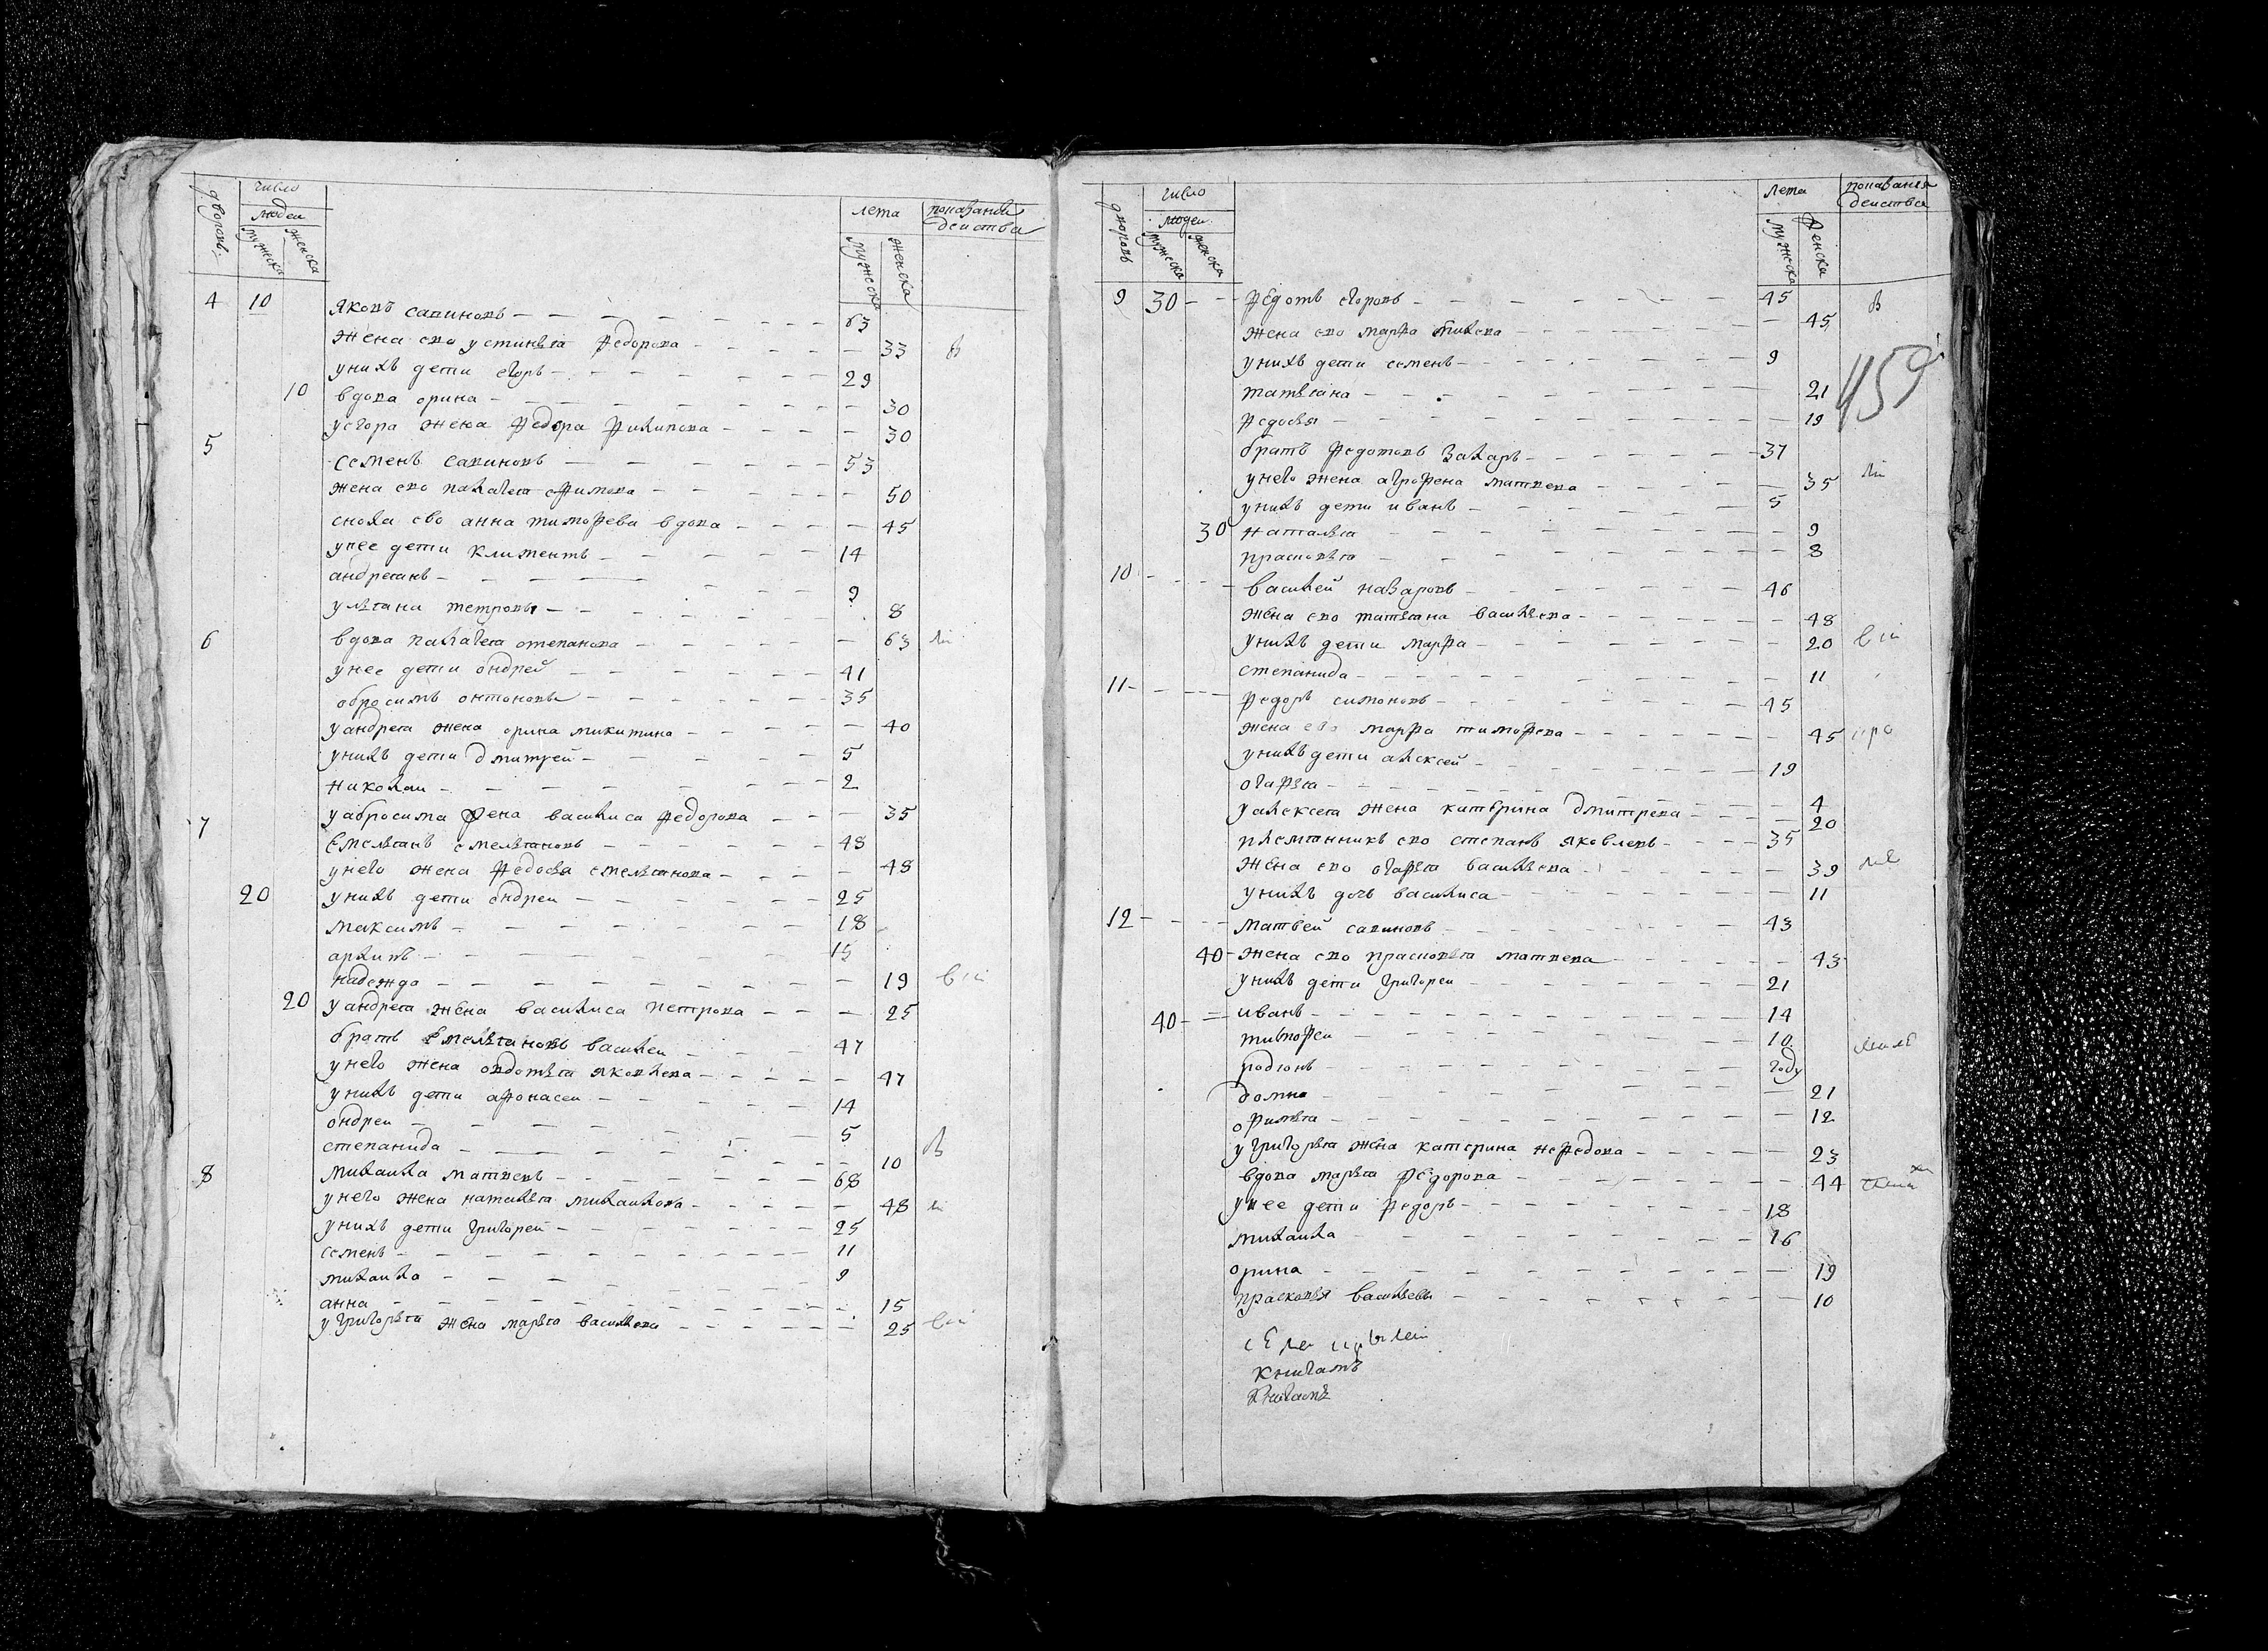 дворовъ
число
людеи
мужеска
женска
лета
мужеска
женска
показани
деиства
4 10 яковъ савиновъ 63
жена ево устинья федорова 33 в
унихъ дети егоръ 29
10 вдова орина 30
уегора жена федора филипова 30
5 семенъ савиновъ 53
жена ево палагея ефимова 50
сноха ево анна тимофева вдова 45
унее дети климентъ 14
андреянъ 9
ульяни петровы 8
6 вдова палагея степанова 63
унее дети ондрей 41
обросимъ онтоновы 35
уандрея жена орина микитина 40
унихъ дети дмитреи 5
николаи 2
уабросима жена василиса федорова 35
7 емельянъ емельяновъ 48
унего жена федосья емельянова 48
20 унихъ дети ондреи 25
максимъ 18
архипъ 15
надежда 19
20 уандрея жена василиса петрова 25
братъ емельяновъ василеи 47
унего жена овдотья яковлева 47
унихъ дети афонасеи 14
ондреи 5
степанида 10
8 михаила матвевъ 68
унего жена наталья михаилова 48
унихъ дети григореи 25
семенъ 11
михаила 9
анна 15
у григорья жена марья василева 25
дворовъ
число
людеи
мужеска
женска
лета
мужеска
женска
показания
деиства
9 30 федотъ егоровъ 45 в
жена ево марфа 45
унихъ дети семенъ 9
459
татьяна 21
федосья 19
братъ федотовъ захаръ 37
унего жена агрофена матвева 35
унихъ дети иванъ 5
30 наталья 9
прасковья 8
10 василей назаровъ 46
жена ево татьяна васильева 48
унихъ дети марфа 20
степанида 11
11 федоръ симоновъ 45
жена ево марфа тимофева 45
унихъ дети алексей 19
огафья 4
уалексея жена катерина дмитрева 20
племянникъ ево степанъ яковлевъ 35
жена ево огафья васильева 39
унихъ дочь василиса 11
12 матвей савиновъ 43
40 жена ево прасковья матвева 43
унихъ дети григореи 21
40 иванъ 14
тимофеи 10
родионъ году
домна 21
офимья 12
у григорья жена катерина нефедова 23
вдова марья федорова 44
унее дети федоръ 18
михаила 16
орина 19
прасковья васильевы 10
книгамъ